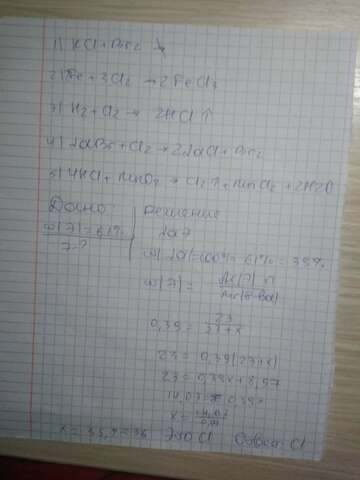 1) KCl + Br2 ↛
2) 2Fe + 3Cl2 → 2FeCl3
3) H2 + Cl2 → 2HCl ↑
4) 2NaBr + Cl2 → 2NaCl + Br2
5) 4HCl + MnO2 → Cl2 ↑ + MnCl2 + 2H2O
Дано:
ω(Г) = 61%
Г-?
Решение
NaГ
ω(Na) = 100% - 61% = 39%
ω(Э) =
0,39 = 23/23+x
23 = 0,39(23+x)
23 = 0,39x + 8,97
14,03 = 0,39x
x = 14,03/0,39
x = 35,9 ≈ 36 Это Cl Ответ: Cl